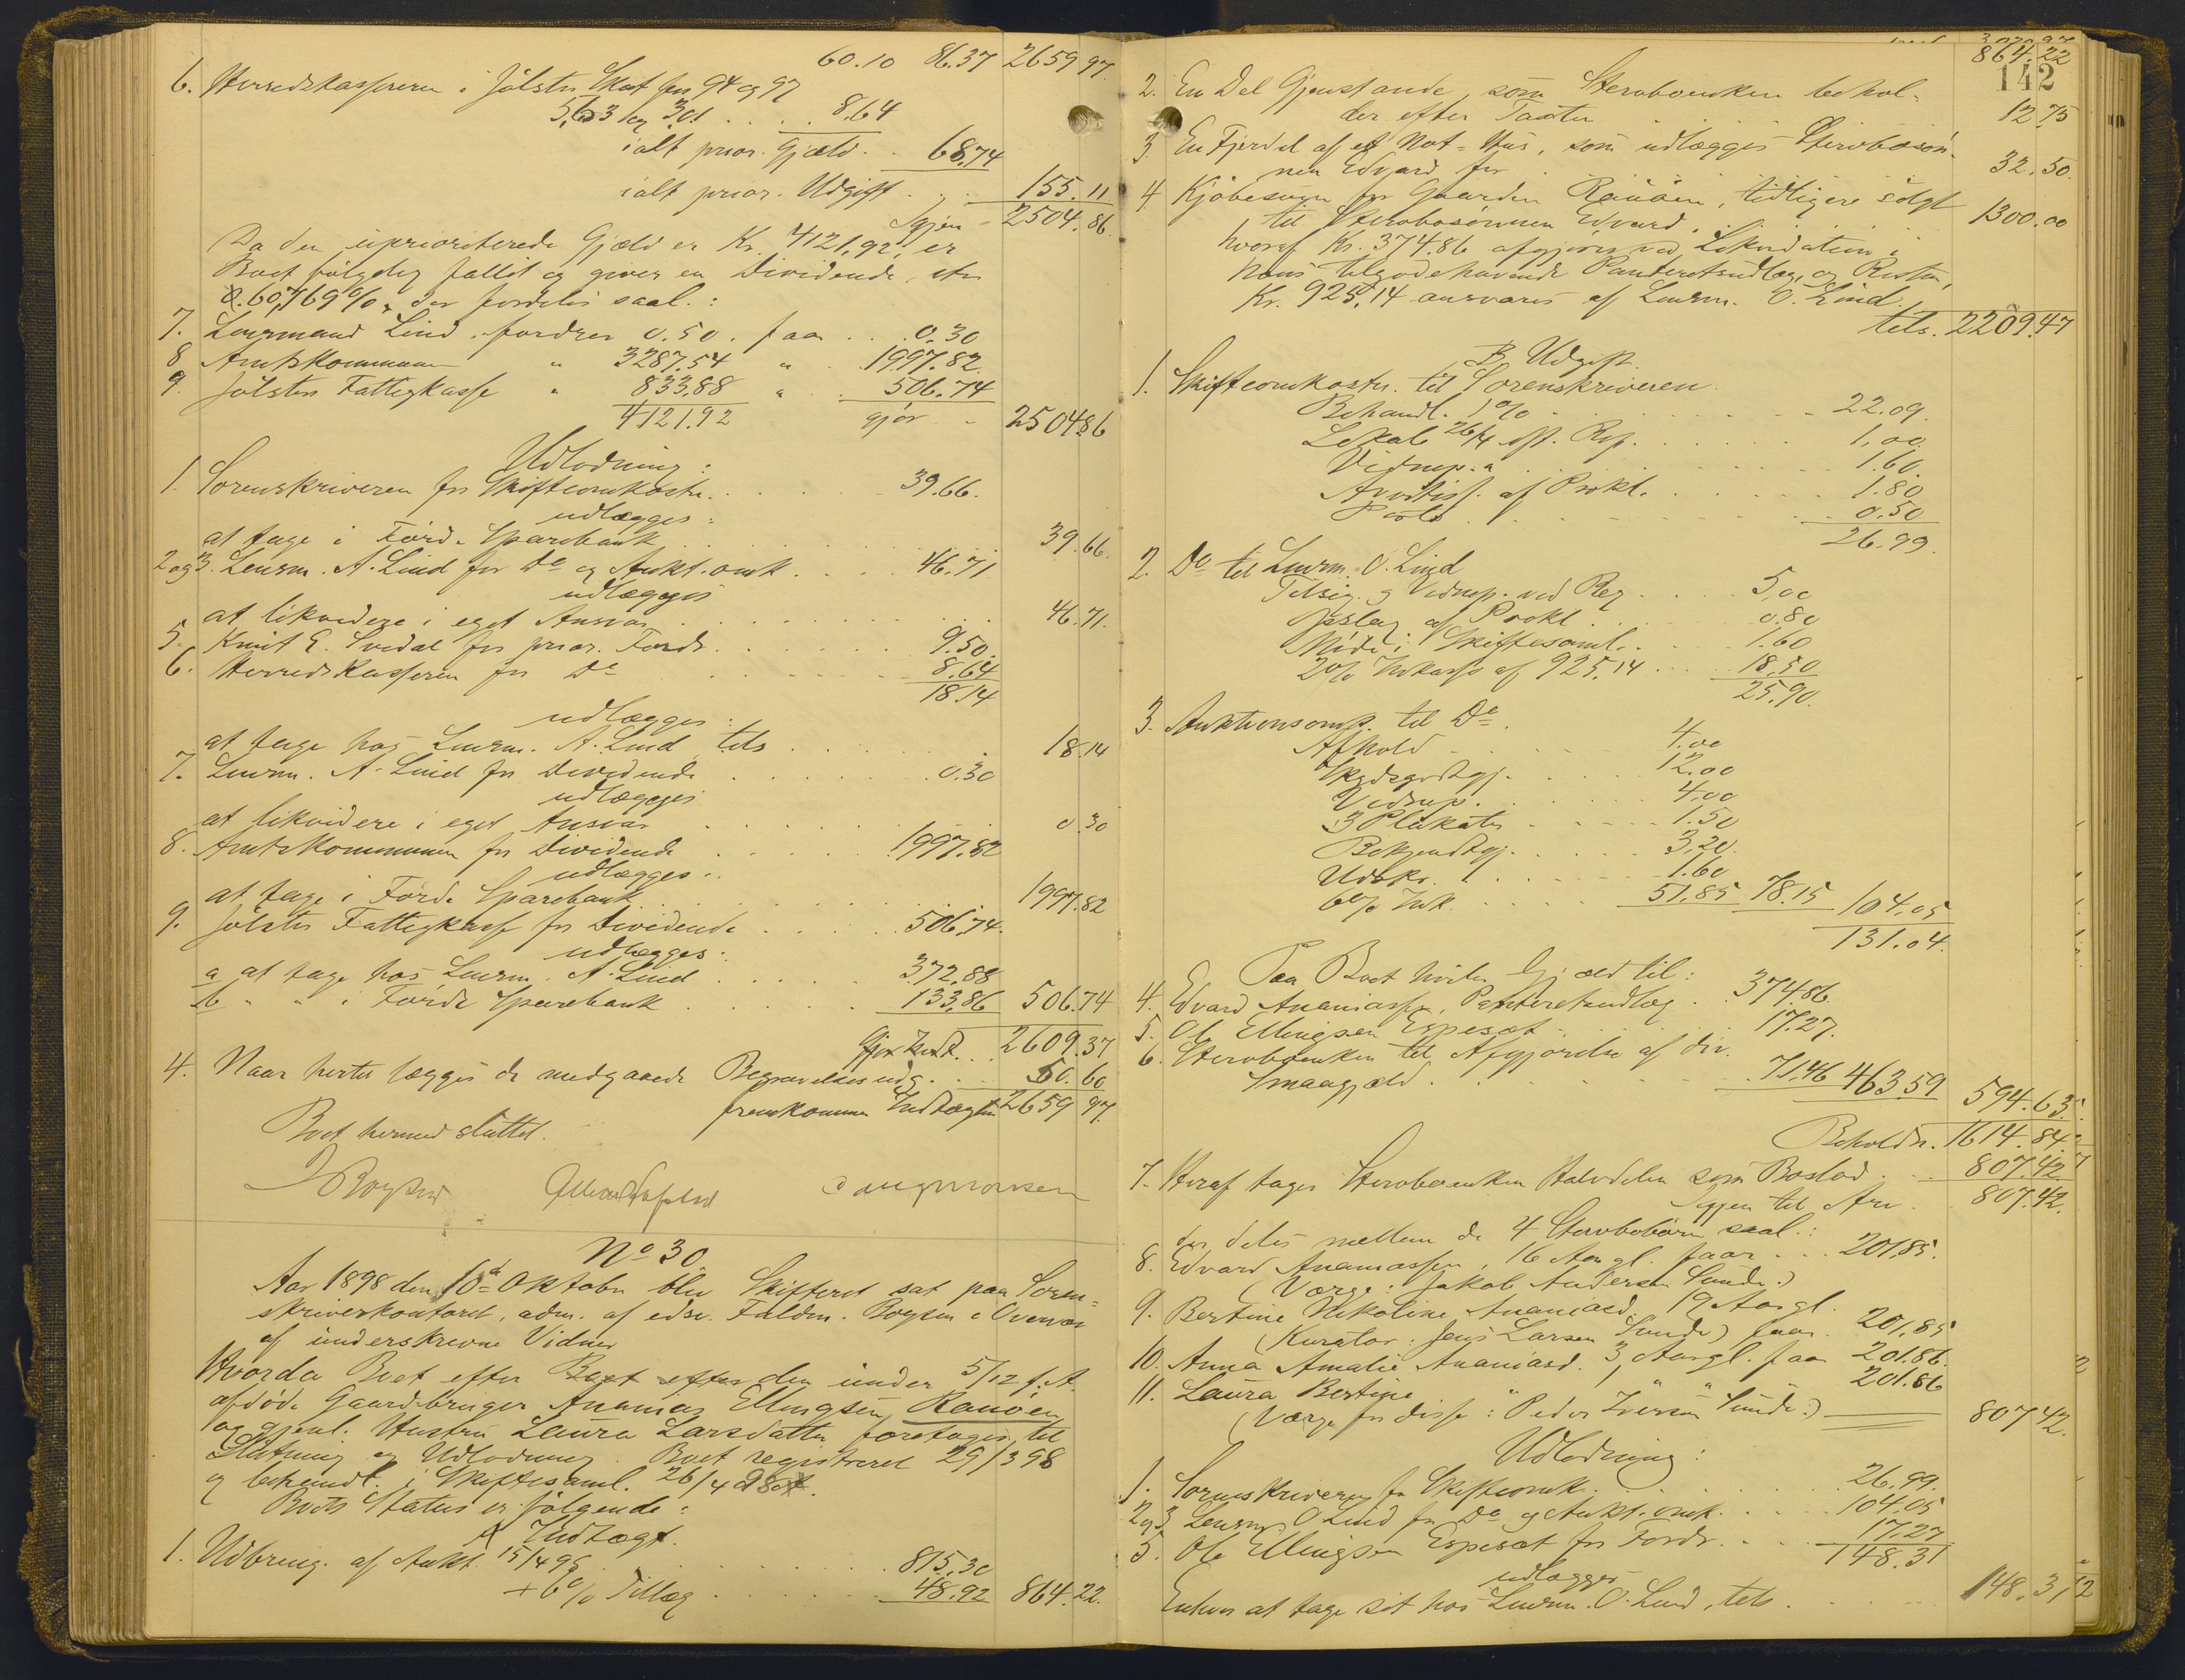 60.10 86.37 2659 97.
6. Herredskassereren i Jölster Skat for 94 og 97
5,63 og 3,01 . . . . 8.64
ialt prior. Gjæld . . 68.74
ialt prior. Udgift . . . 155.11
Igjen - 2504.86.
Da den uprioriterede Gjæld er Kr. 4121,92, er
Boet følgelig fallit og giver en Dividende, stor
60,769 %, der fordeles saal.:
7. Lensmand Lind fordrer 0.50. faar . . 0.30
8 Amtskommunen " 3287.54 " . 1997.82
9. Jölsters Fattigkasse " 833.88 " . . 506.74
4121.92 gjör - 2504.86
Udlodning:
1. Sorenskriveren for Skifteomkostn. . . . . 39.66.
udlægges:
at tage i Förde Sparebank . . . . . . 39.66.
2 og 3. Lensm. A. Lind for Do og Aukt. omk. . . . 46.71
udlægges
at likvidere i eget Ansvar . . . . . . . . 46.71.
5. Knut E. Svidal for prior. Fordr. . . . . 9.50.
6. Herredskasseren for Do . . . . . 8.64
18.14
udlægges:
at tage hos Lensm. A. Lind tils . . . . . 18.14
7. Lensm. A. Lind for Dividende . . . . . 0.30
udlægges
at likvidere i eget Ansvar . . . . . . . 0.30
8. Amtskommunen for Dividende . . . . . 1997.82
udlægges:
at tage i Förde Sparebank . . . . . . . 1997.82
9. Jölster Fattigkasse for Dividende . . . . . 506.74.
udlægges:
a at tage hos Lensm. A. Lind . . . . . 372,88
b " " i Förde Sparebank . . . . . 133,86 506.74
Gjör Indt. . . 2609.37
4. Naar hertil lægges de medgaaede Begravelsesudg. . . 50.60
fremkommer Indtægten 2659 97.
Boet hermed sluttet.
No 30.
Aar 1898 den 10de Oktober blev Skifteret sat paa Soren=
skriverkontoret, adm. af edsv. Fuldm. Boysen i Overvær
af underskrevne Vidner
Hvorda Boet efter Boet efter den under 5/12 f. A.
afdöde Gaardbruger Ananias Ellingsen Rauöen
og gjenl. Hustru Laura Larsdatter foretages til
Slutning og Udlodning. Boet registreret 29/3 98
og behandl. i Skiftesaml. 26/4 98.
Boets Status er følgende:
A Indtægt.
1. Udbring. af Aukt. 15/4 98 . . . . . . . 815,30
+ 6% Tillæg . . . . . . . 48.92 864.22.
864.22
142
2. En Del Gjenstande, som Sterboenken behol=
der efter Taxten . . . . 12.75
3. En Fjerdel af et Not-Hus, som udlægges Sterbosön-
nen Edvard for . . . . 32.50.
4. Kjöbesum for Gaarden Rauöen, tidligere solgt
til Sterbosönnen Edvard . . . 1300.00
hvoraf Kr. 374.86 afgjöres ved Likvidation i
hans tilgodehavende Panteretsudlæg, og Resten,
Kr. 925,14 ansvares af Lensm. O. Lind.
tils. 2209.47
B. Udgift.
1. Skifteomkostn. til Sorenskriveren.
Behandl. 1% . . . . . . . . 22.09.
Lokale 26/4 . . . . . . 1,00.
Vidnep. . . . . . . . . 1.60.
Avertiss. af Prokl. . . . . . 1.80
Porto . . . . . . . . . 0.50
26.99.
2. Do til Lensm. O. Lind
Tilsig. og Vidnep. ved Reg. . . . . 5,00
Opslag af Prokl . . . . 0.80
Möde i Skiftesaml. . . . 1.60
2% Inkasso af 925.14 . . . . 18.50
25.90.
3. Auktionsomk. til Do.
Afhold . . . . . . . . 4.00
Skydsgodtgj. . . . . . 12.00
Vidnep. . . . . . . . . 4.00
3 Plakater . . . . . . 1.50
Bekjendtgj. . . . . . . 3,20.
Udskr. . . . . . . . . 1.60
6% Ink. . . . . . . 51,85 78.15 104.05
131.04.
Paa Boet hviler Gjæld til:
4. Edvard Ananiassen, Panteretsudlæg . . 374.86.
5. Ole Ellingsen Espeset . . . . . 17.27.
6. Sterboenken til Afgjörelse af div.
Smaagjæld . . . . . . . . 71,46 463.59 594.63.
Beholdn. 1614.84.
7. Heraf tager Sterboenken Halvdelen som Boslod . . 807.42
Igjen til Arv . 807.42.
der deles mellem de 4 Sterbobörn saal.:
8. Edvard Ananiassen, 16 Aar gl. faar . . . 201,85.
(Værge: Jakob Andersen Sunde.)
9. Bertine Nikoline Ananiasd. 19 Aar gl.
(Kurator: Jens Larsen Sunde) faar . 201,85
10. Anna Amalie Ananiasd. 3, Aar gl. faar 201.86.
11. Laura Bertine " " " 201.86
(Værge for disse: Peder Iversen Sunde.) 807 42.
Udlodning:
1. Sorenskriveren for Skifteomk. . . . . . 26.99.
2 og 3 Lensm. O Lind for Do og Aukt. omk. . . . 104.05
5. Ole Ellingsen Espeset for Fordr. . . . 17.27
148.31
udlægges
Enhver at tage sit hos Lensm. O. Lind, tils. . . . . 148.31